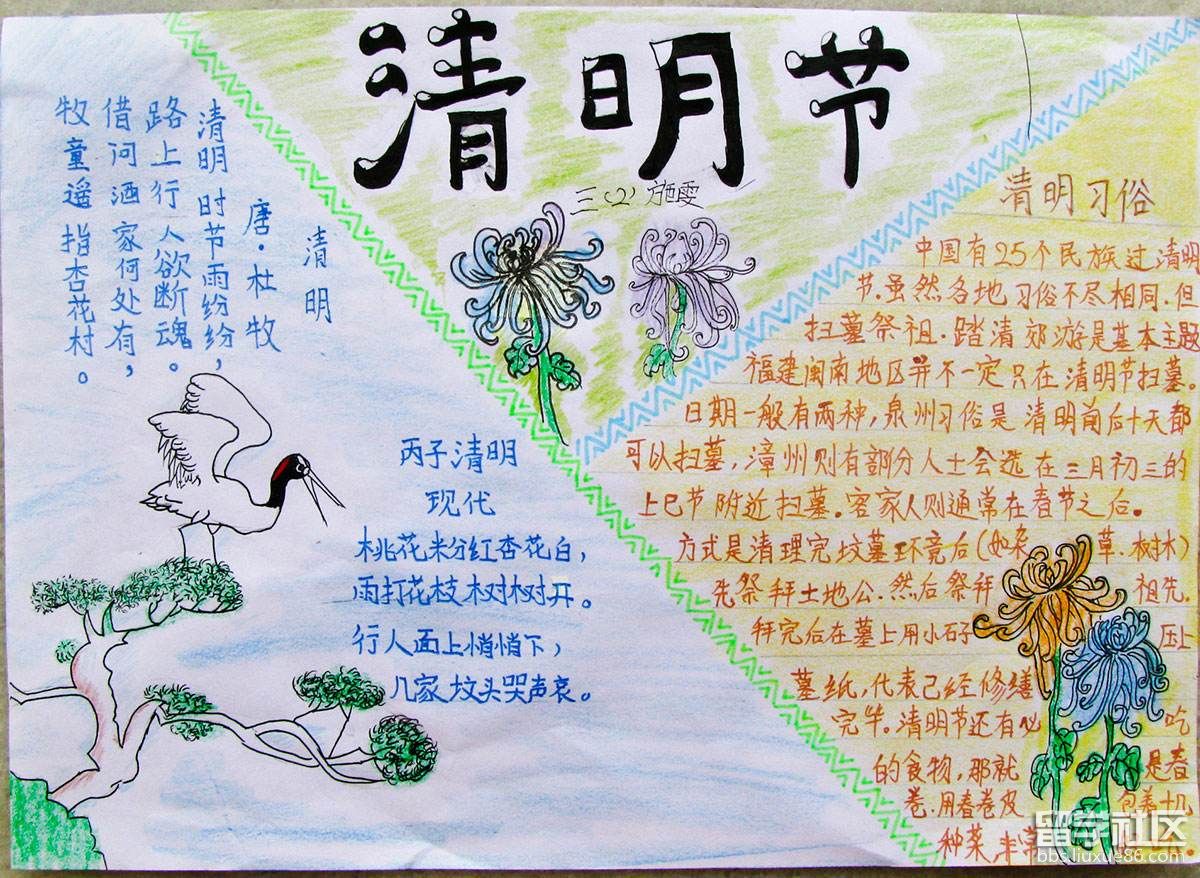 清明节
三(2) 施雯
清明
唐·杜牧
清明时节雨纷纷，
路上行人欲断魂。
借问洒家何处有，
牧童遥指杏花村。
丙子清明
现代
桃花粉红杏花白，
雨打花枝树树开。
行人面上悄悄下，
几家坟头哭声哀。
清明习俗
中国有25个民族过清明
节.虽然各地习俗不尽相同.但
扫墓祭祖.踏清郊游是基本主题
福建闽南地区并不一定只在清明节扫墓.
日期一般有两种，泉州习俗是清明前后十天都
可以扫墓，漳州则有部分人士会选在三月初三的
上巳节附近扫墓。客家人则通常在春节之后。
方式是清理完坟墓环境后(如杂草.树木)
先祭拜土地公.然后祭拜祖先.
拜完后在墓上用小石子压上
墓纸，代表已经修缮
完毕。清明节还有必吃
的食物，那就是春
卷.用春卷皮包着十几
种菜
留学社区
bbs.liuxue86.com